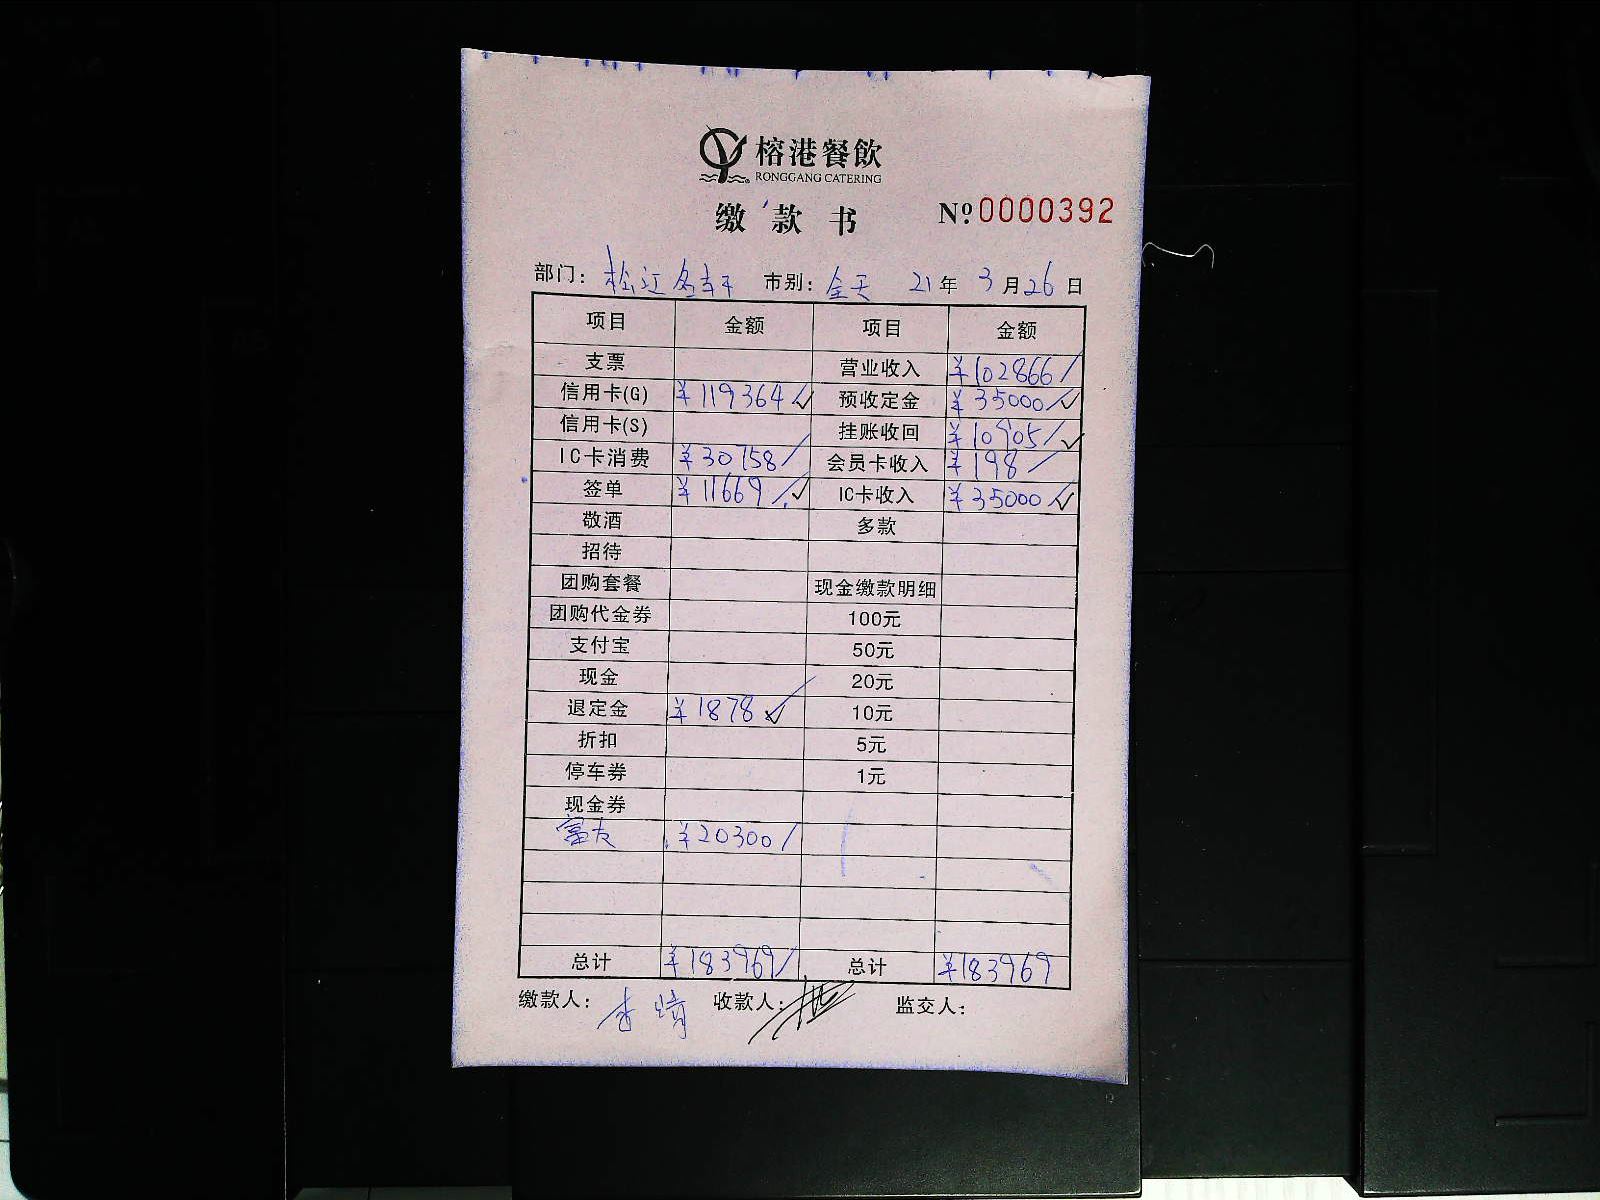 榕港餐飲
RONGGANG CATERING
缴款书 №0000392
部门: 松江名轩 市别: 全天 21年 3月26日
项目 金额 项目 金额
支票 营业收入 ¥102866
信用卡(G) ¥119364 预收定金 ¥35000
信用卡(S) 挂账收回 ¥10905
IC卡消费 ¥30758 会员卡收入 ¥198
签单 ¥11669 IC卡收入 ¥35000
敬酒 多款
招待
团购套餐 现金缴款明细
团购代金券 100元
支付宝 50元
现金 20元
退定金 ¥1878 10元
折扣 5元
停车券 1元
现金券
富友 ¥20300
总计 ¥183969 总计 ¥183969
缴款人: 收款人: 监交人: